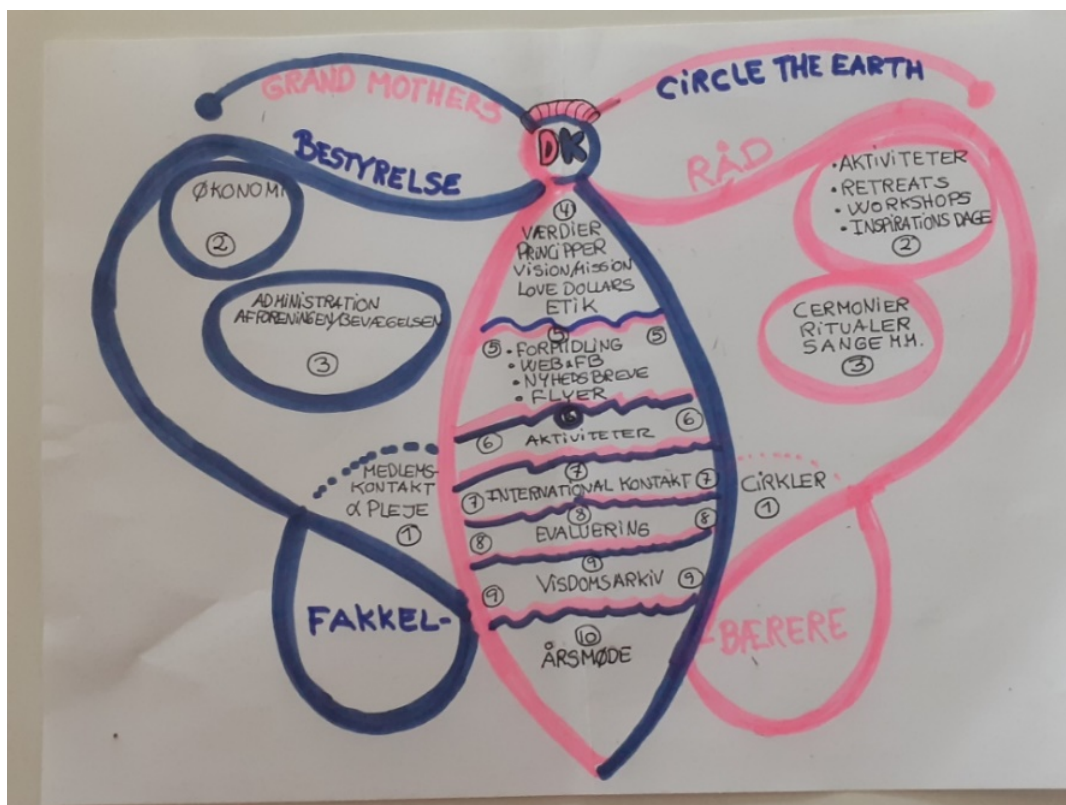 GRAND MOTHERS
CIRCLE THE EARTH
DK
BESTYRELSE
RÅD
ØKONOMI
2
ADMINISTRATION
AF FORENINGEN/BEVÆGELSEN
3
MEDLEMS-
KONTAKT
& PLEJE
1
FAKKEL-
4
VÆRDIER
PRINCIPPER
VISION/MISSION
LOVE DOLLARS
ETIK
5 5 5
• FORMIDLING
• WEB & FB
• NYHEDSBREVE
• FLYER
6 6
AKTIVITETER
7
7 INTERNATIONAL KONTAKT 7
8
8 EVALUERING 8
9
9 VISDOMSARKIV 9
10
ÅRSMØDE
• AKTIVITETER
• RETREATS
• WORKSHOPS
• INSPIRATIONS DAGE
2
CERMONIER
RITUALER
SANGE M.M.
3
CIRKLER
1
BÆRERE